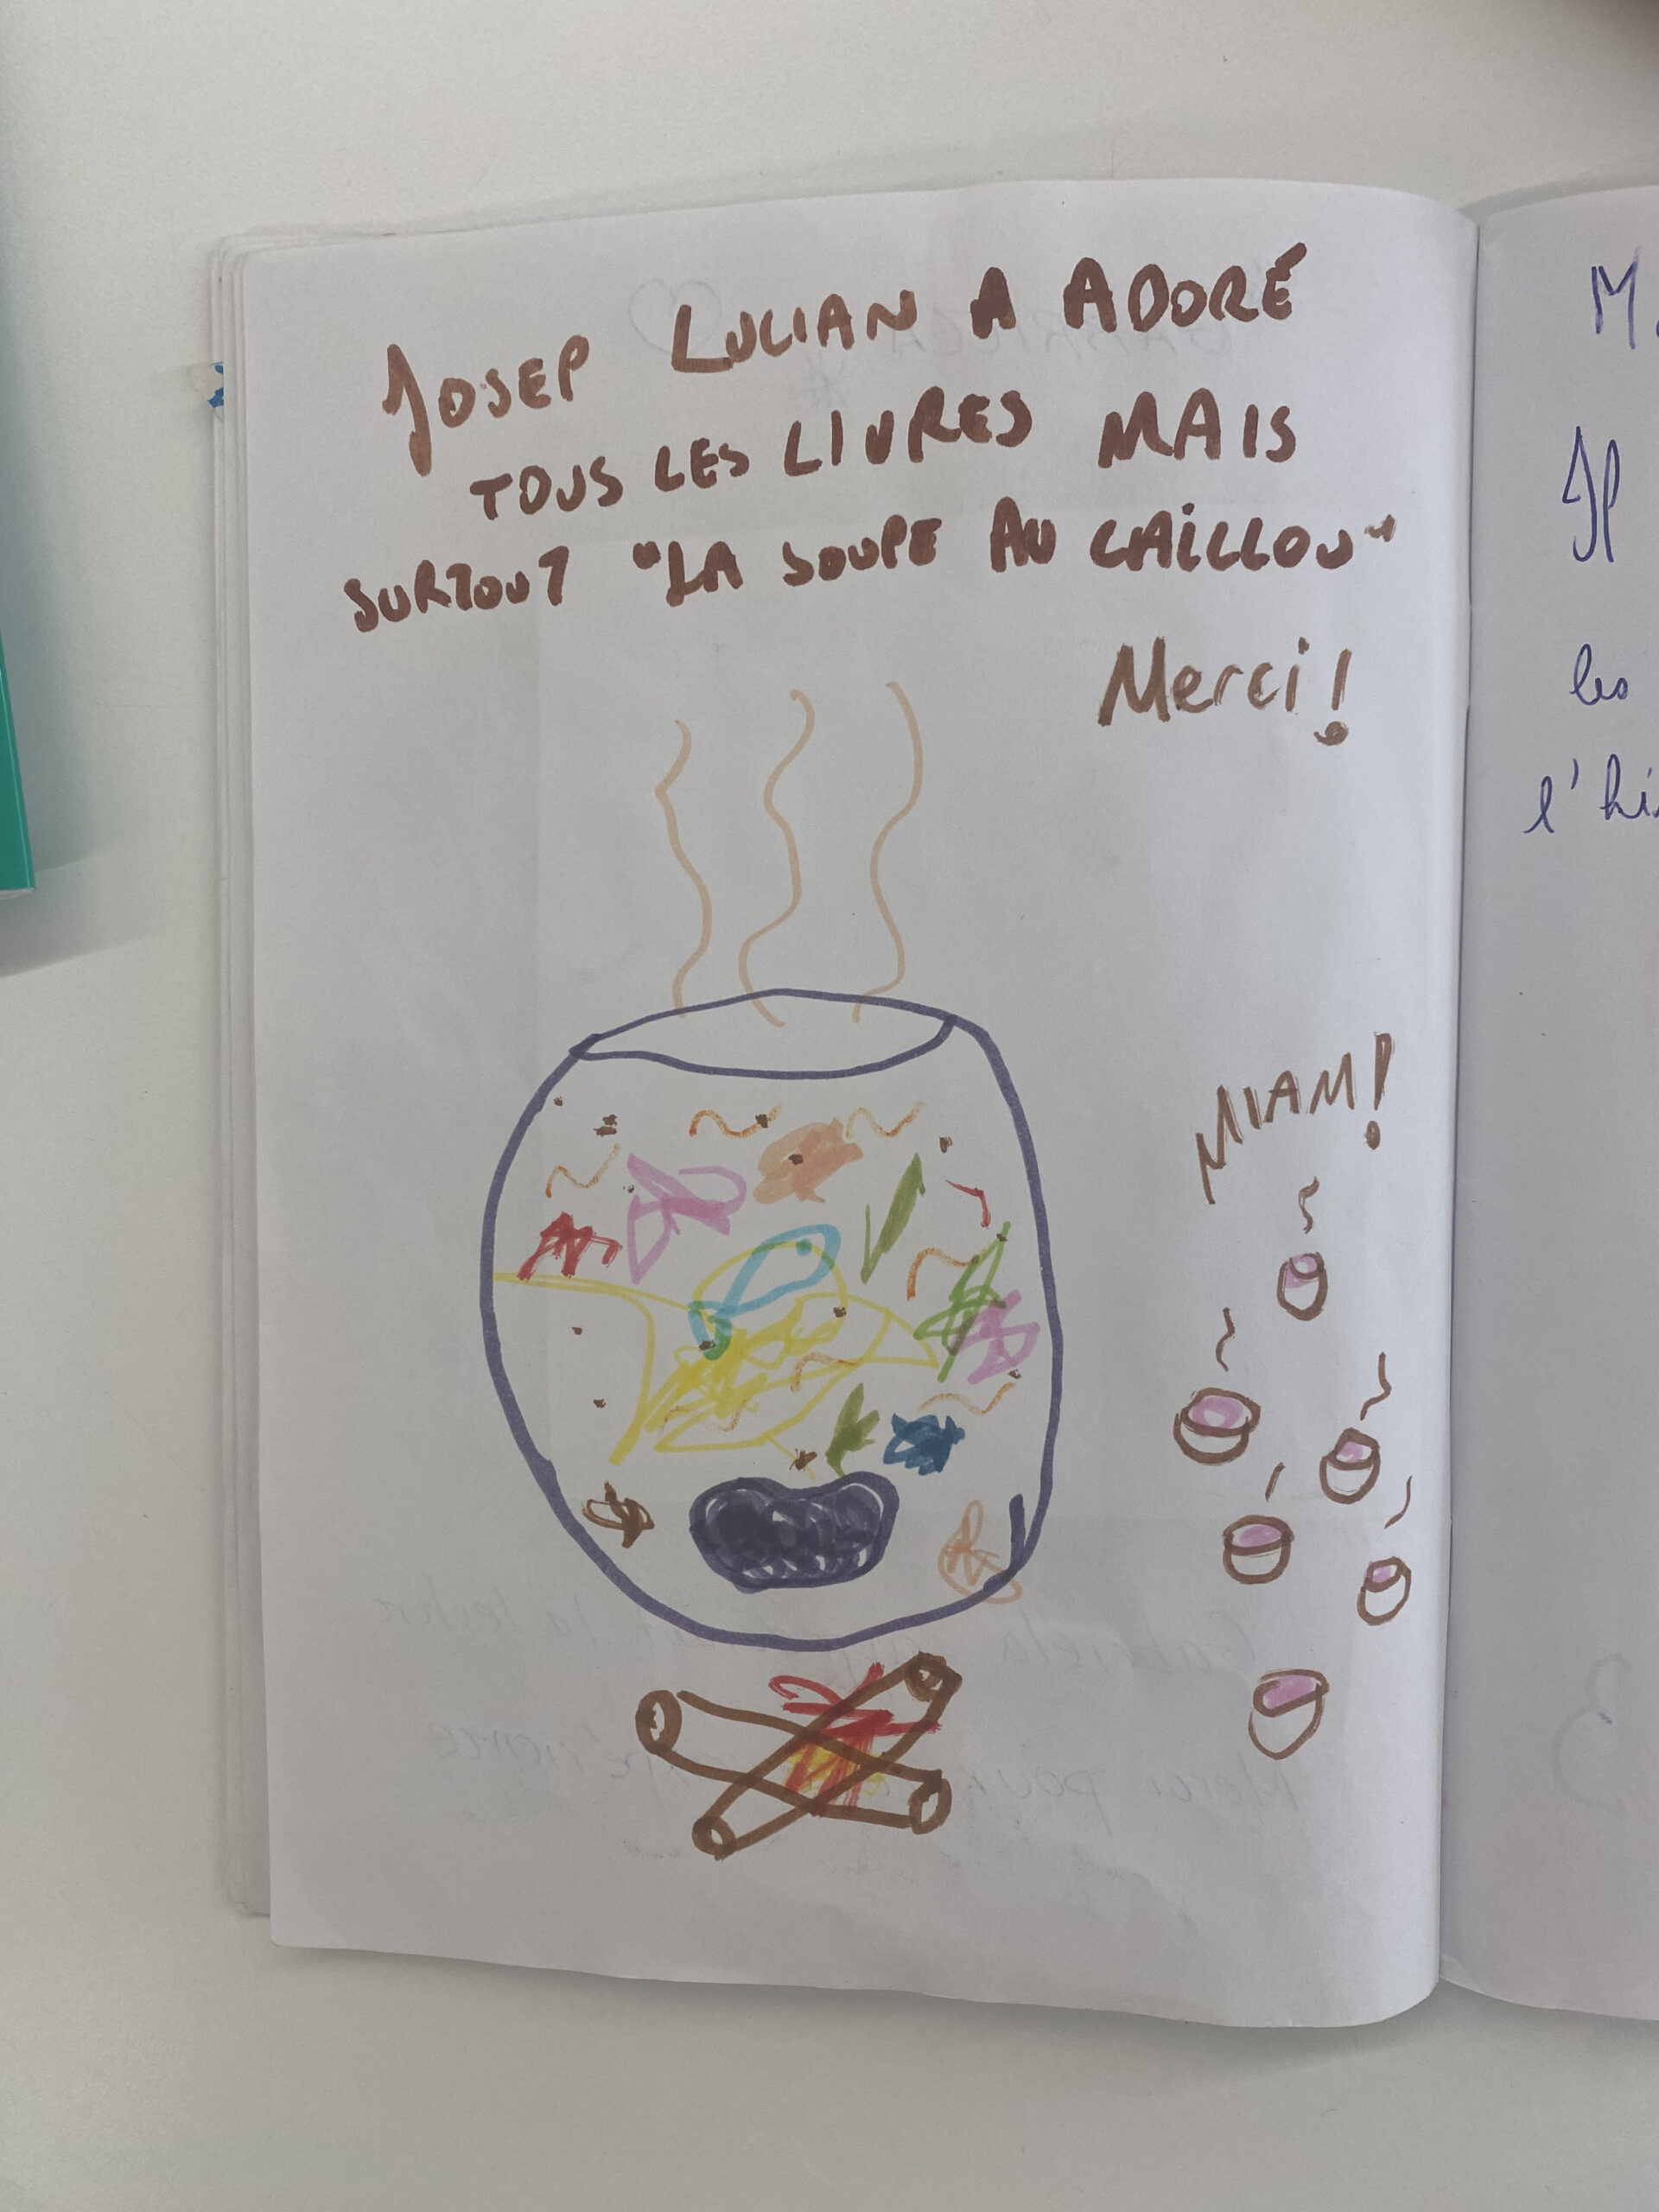 JOSEP LUCIAN A ADORÉ
TOUS LES LIVRES MAIS
SURTOUT "LA SOUPE AU CAILLOU"
Merci !
MIAM !
M
Il
les
l'hi